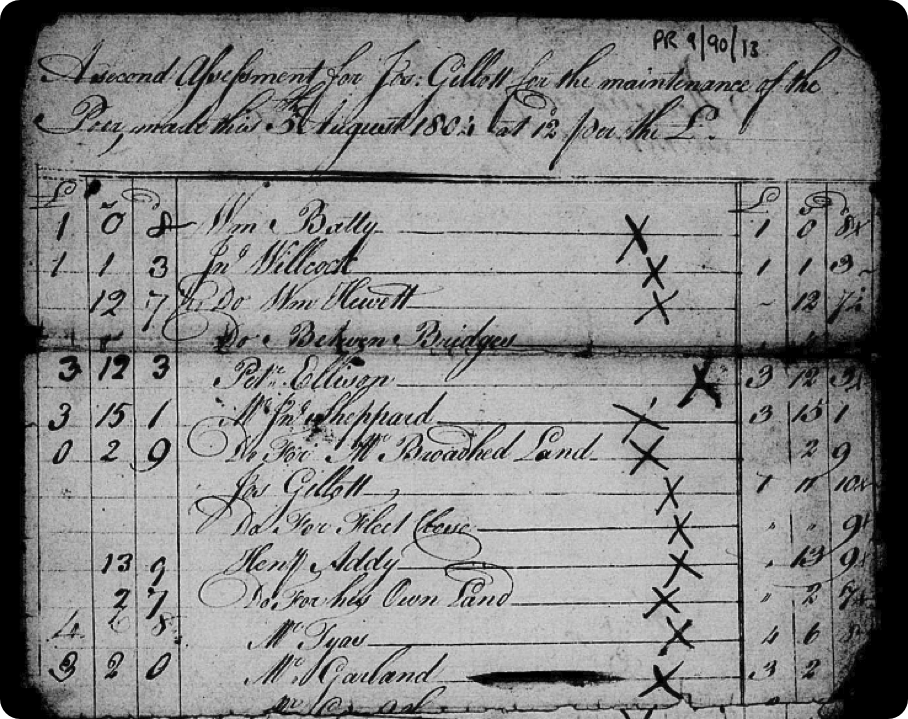 PR 9/90/13
A second Assessment for Jos: Gillott for the maintenance of the
Poor, made this 5th August 1804 at 12d per the £.
£ s D £ s D
1 0 8 Wm Batty X 1 0 8
1 1 3 Jno Willcock X 1 1 3
12 7 Do Wm Hewett X 12 7
Do Betwen Bridges
3 12 3 Ellison X 3 12 3
3 15 1 Mr Jno Sheppard X 3 15 1
0 2 9 Do For Mr Broadhed Land X 2 9
Jos Gillott X 11 10
Do For Fleet Close X " " 9
13 9 Heny Addy X " 13 9
2 7 Do For his Own Land X " 2 7
4 6 8 Mr Tyas X 4 6 8
3 2 0 Mr Garland X 3 2